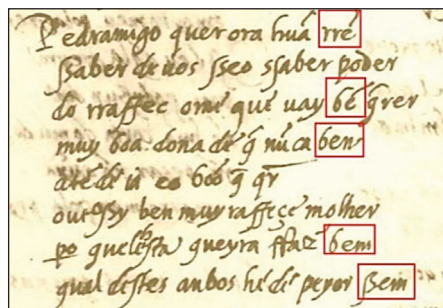 Pedramigo quer ora hũa rrẽ
ssaber de uos sseo ssaber poder
do rraffec ome que uay bẽ q̃rer
muy boa dona de q̃ nũca ben
atẽde
outssy ben muy raffeçe molher
po quelhesta queyra ffaz bem
qual destes anbos he de peyor ssem